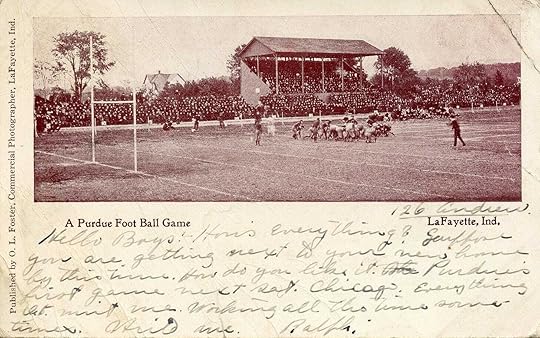 Published by O. L. Foster, Commercial Photographer, LaFayette, Ind.
A Purdue Foot Ball Game
LaFayette, Ind.
126 Andrew.
Hello Boys. How's Everything? Suppose
you are getting next to your new home
by this time. How do you like it. Purdue's
first game next Sat. Chicago. Everything
at. mint me. Working all this time some
times. Write me. Ralph.